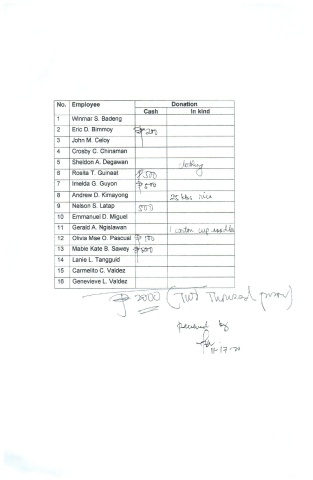 No. Employee Donation
Cash In kind
1 Winmar S. Badeng
2 Eric D. Bimmoy ₱ 200
3 John M. Celoy
4 Crosby C. Chinaman
5 Sheldon A. Degawan clothing
6 Rosita T. Guinaat ₱500
7 Imelda G. Guyon ₱500
8 Andrew D. Kimayong 25 kls rice
9 Nelson S. Latap 500
10 Emmanuel D. Miguel
11 Gerald A. Ngislawan 1 carton cup noodles
12 Olivia Mae O. Pascual ₱ 100
13 Mable Kate B. Sawey ₱500
14 Lanie L. Tangguid
15 Carmelito C. Valdez
16 Genevieve L. Valdez
₱ 2000 (Two Thousand pesos)
received by
8-17-20